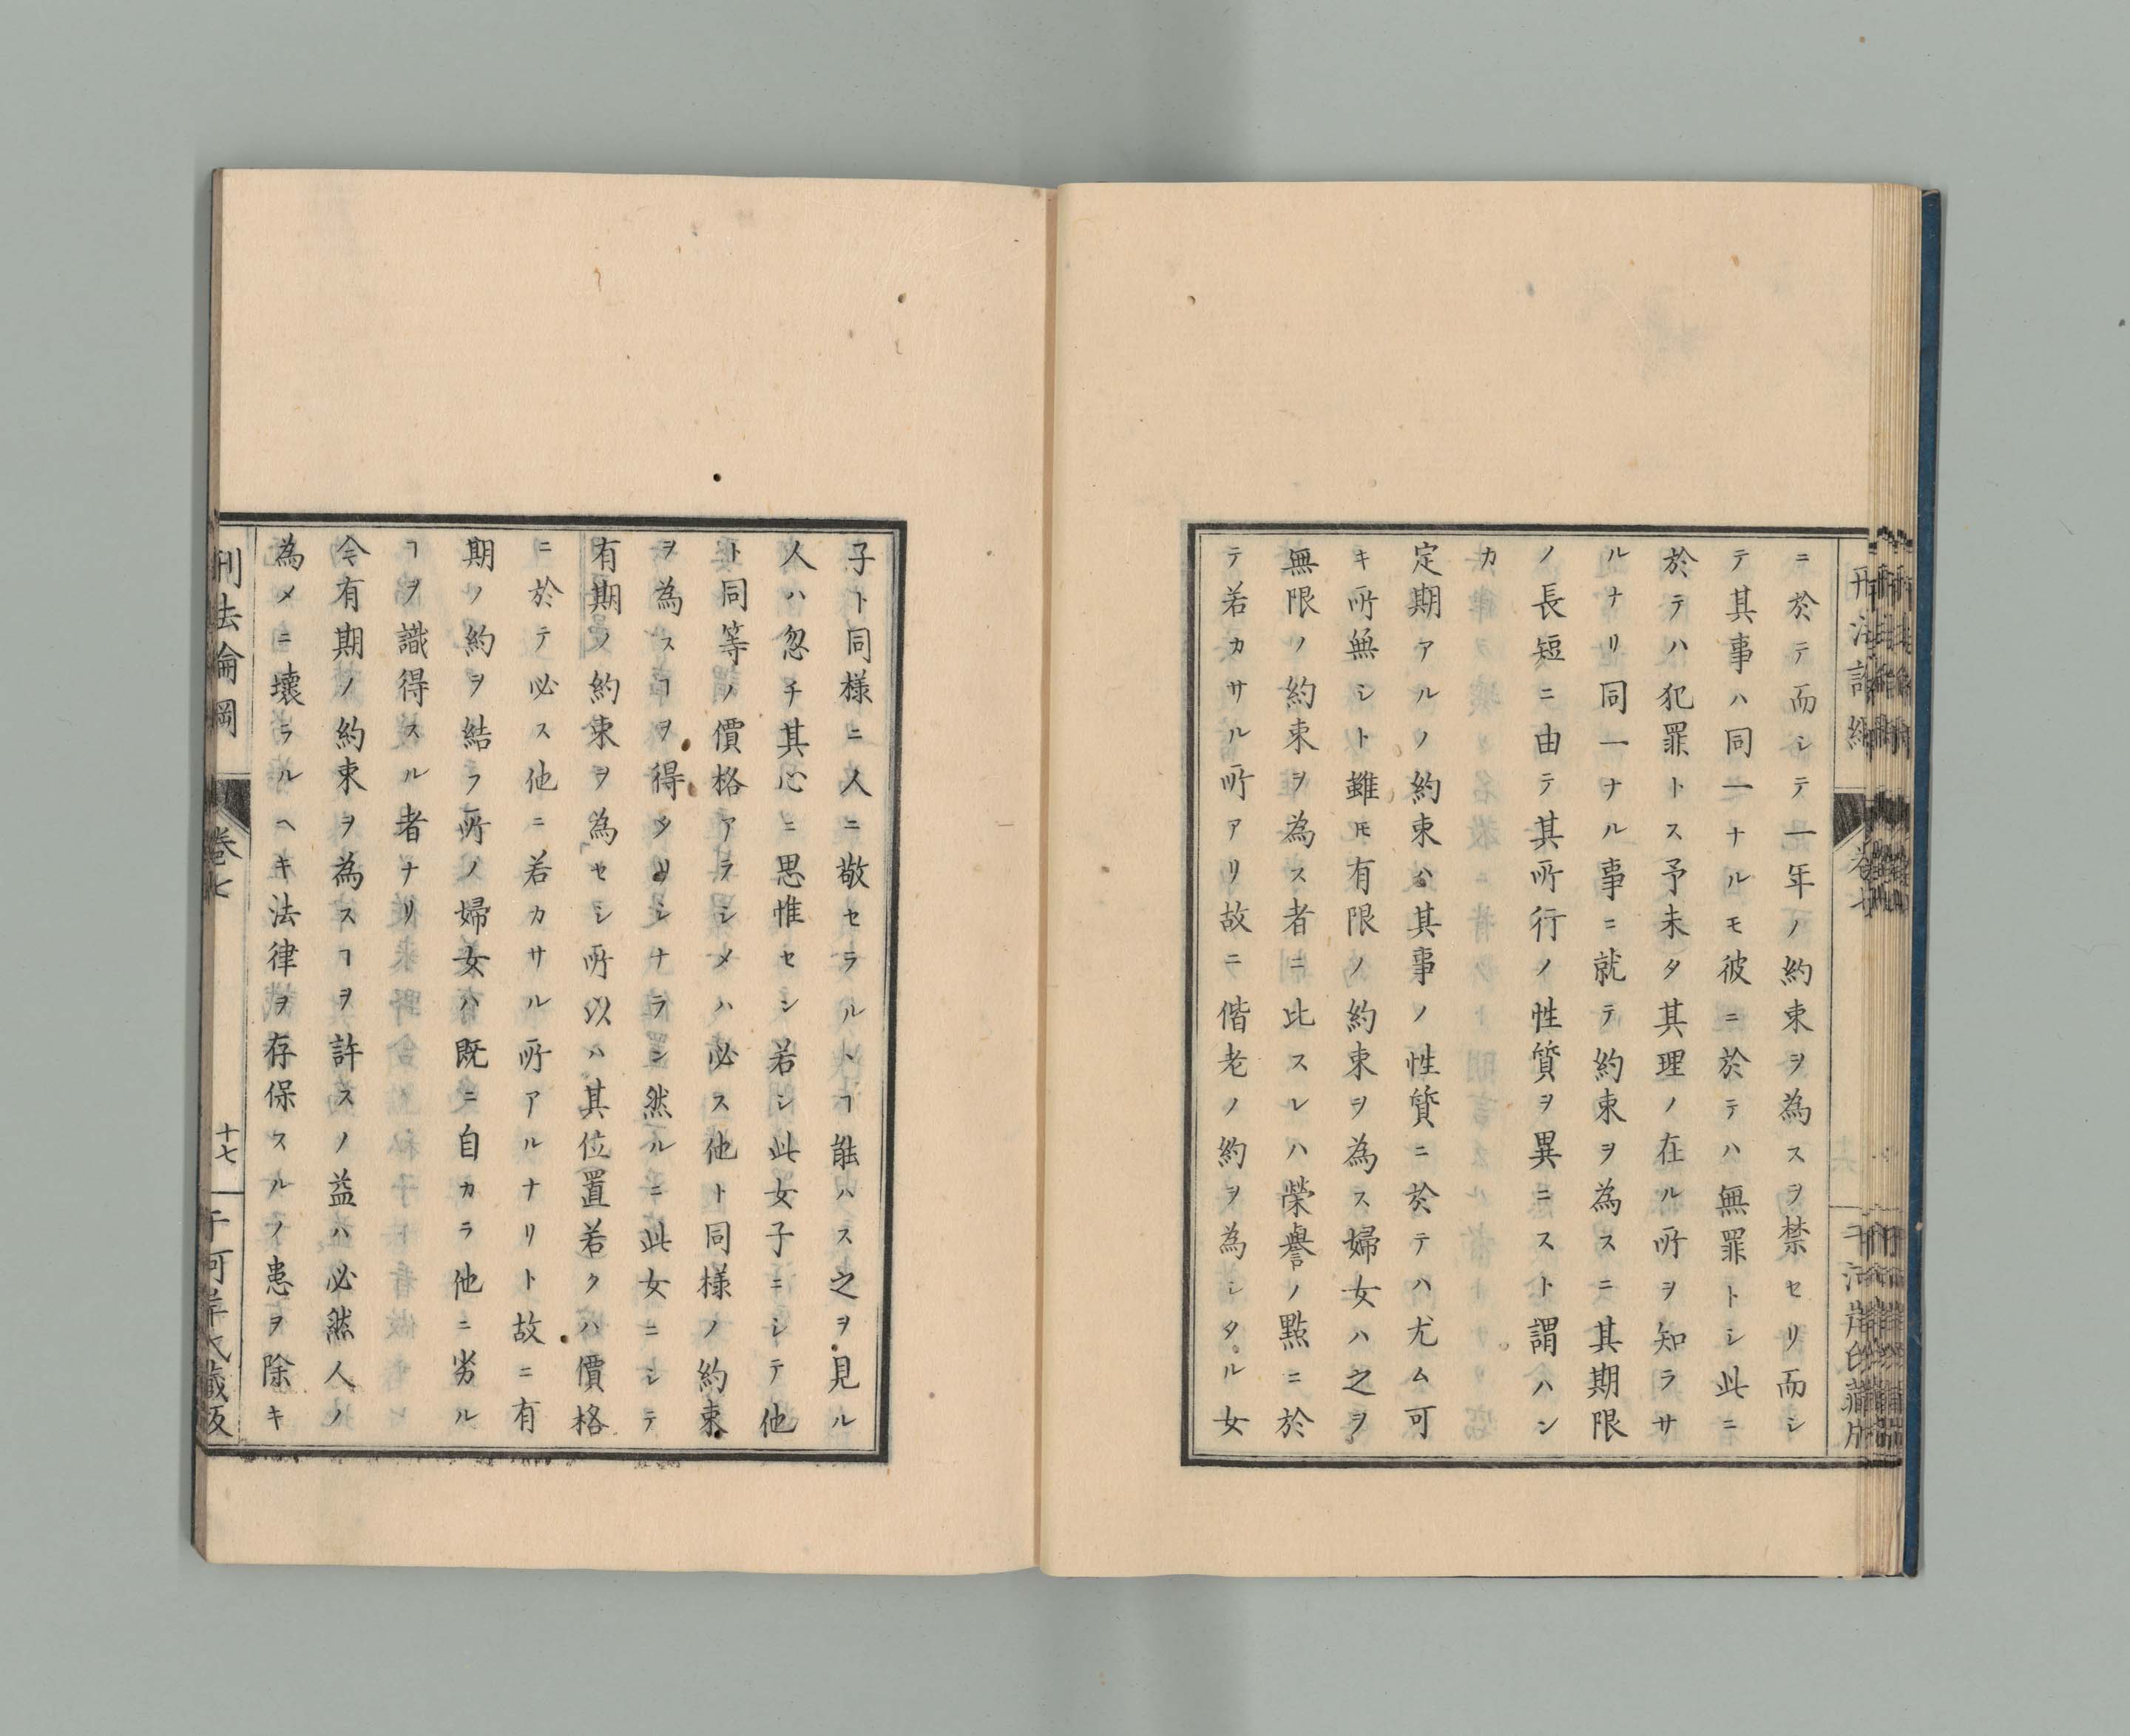 ニ於テ而シテ一年ノ約束ヲ為スヲ禁セリ而シ
テ其事ハ同一ナルモ彼ニ於テハ無罪トシ此ニ
於テハ犯罪トス予未タ其理ノ在ル所ヲ知ラサ
ルナリ同一ナル事ニ就テ約束ヲ為スニ其期限
ノ長短ニ由テ其所行ノ性質ヲ異ニスト謂ハン
カ
定期アルノ約束ハ其事ノ性質ニ於テハ尤ム可
キ所無シト雖𪜈有限ノ約束ヲ為ス婦女ハ之ヲ
無限ノ約束ヲ為ス者ニ比スレハ榮譽ノ點ニ於
テ若カサル所アリ故ニ偕老ノ約ヲ為シタル女
子ト同様ニ人ニ敬セラルヽヿ能ハス之ヲ見ル
人ハ忽チ其心ニ思惟セシ若シ此女子ニシテ他
ト同等ノ價格アラシメハ必ス他ト同様ノ約束
ヲ為スヿヲ得タリシナラン然ルニ此女ニシテ
有期ノ約束ヲ為セシ所以ハ其位置若クハ價格
ニ於テ必ス他ニ若カサル所アルナリト故ニ有
期ノ約ヲ結フ所ノ婦女ハ既ニ自カラ他ニ劣ル
ヿヲ識得スル者ナリ
今有期ノ約束ヲ為スヿヲ許スノ益ハ必然人ノ
為メニ壊ラルヘキ法律ヲ存保スルノ患ヲ除キ
刑法論綱
卷七
十七
于河岸氏藏版